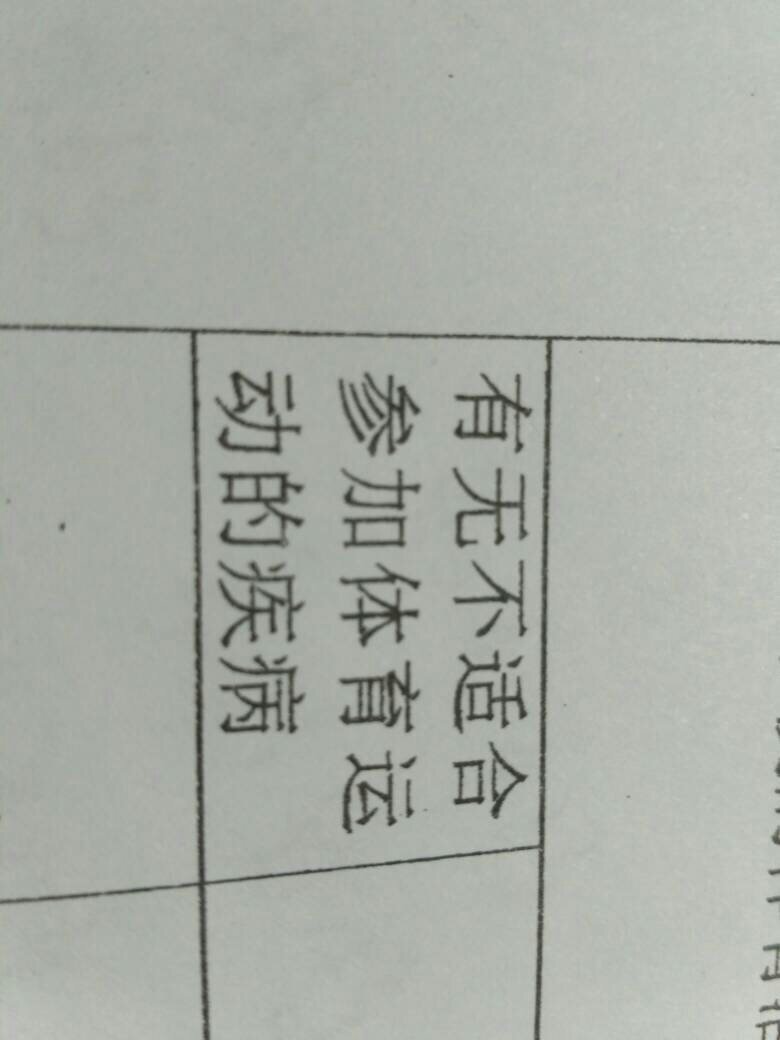 有无不适合
参加体育运
动的疾病